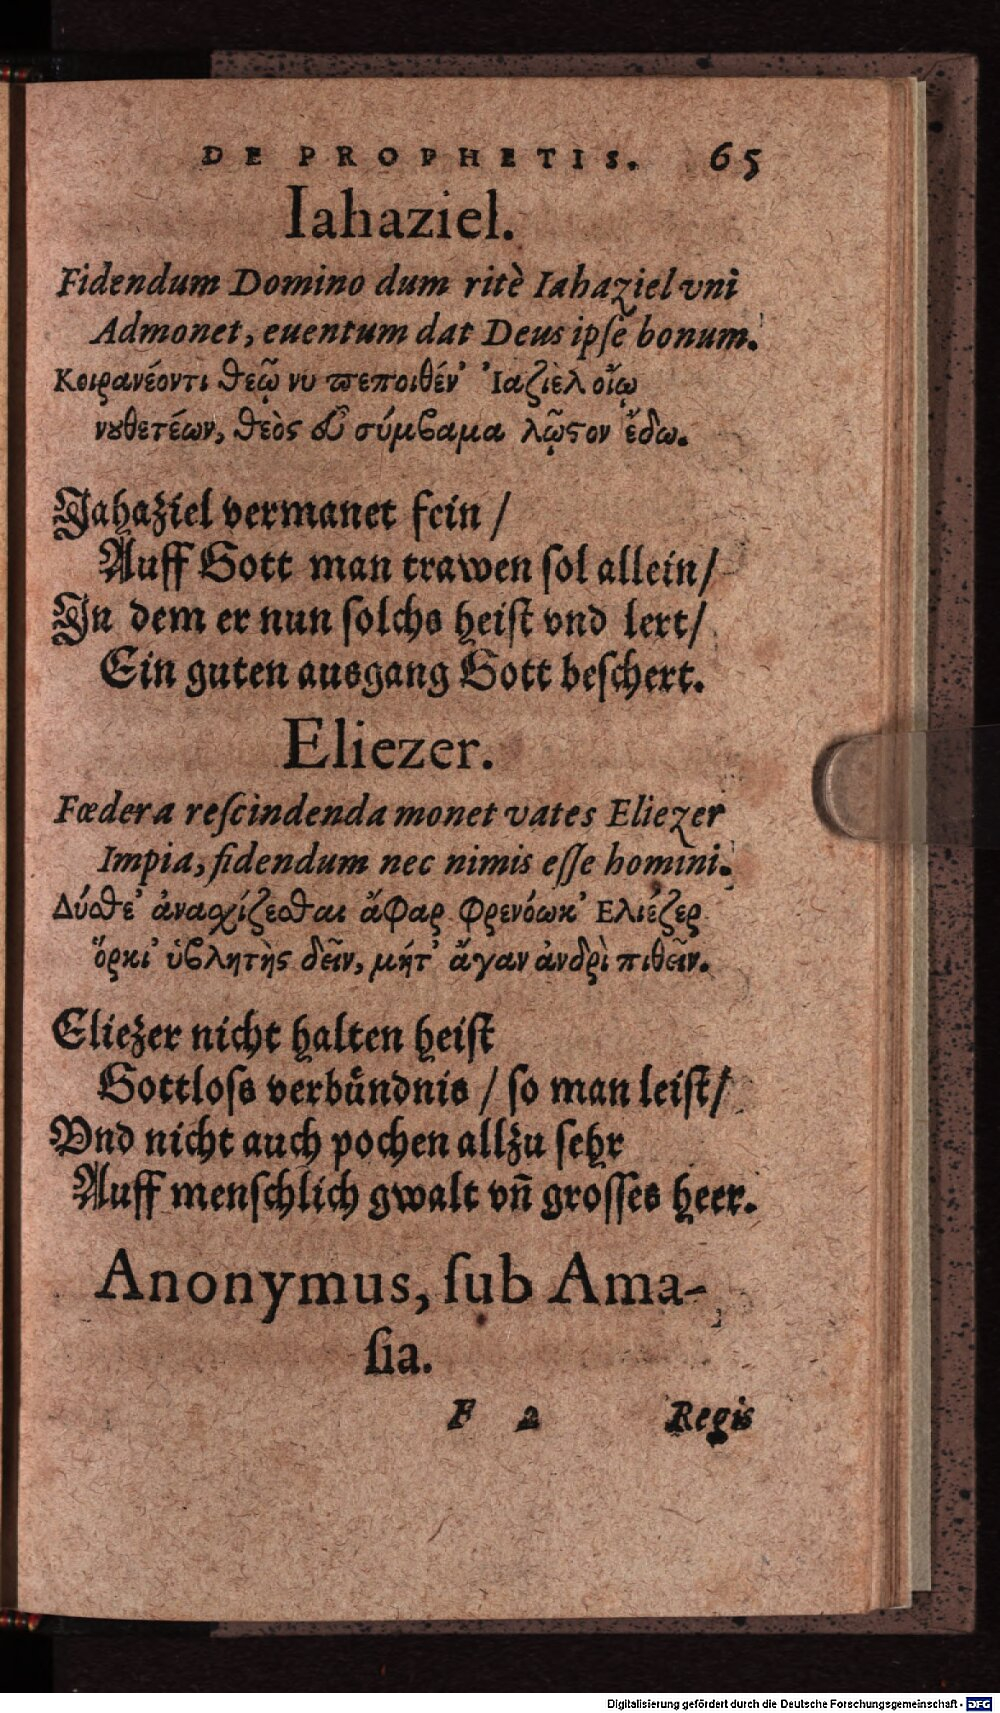 DE PROPHETIS. 65
Iahaziel.
Fidendum Domino dum ritè Iahaziel vni
Admonet, euentum dat Deus ipſe bonum.
Κοιρανέοντι θεῷ νυ πεποιθέν' Ἰαζιὲλ οἴῳ
νουθετέων, θεὸς εὖ σύμβαμα λῷστον ἔδω.
Jahaziel vermanet fein /
Auff Gott man trawen ſol allein /
In dem er nun ſolchs heiſt vnd lert /
Ein guten ausgang Gott beſchert.
Eliezer.
Fœdera reſcindenda monet vates Eliezer
Impia, fidendum nec nimis eſſe homini.
Δύσθε' ἀνασχίζεσθαι ἄφαρ φρενόωκ' Ελιέζερ
ὅρκι' ὑβλητὴς δεῖν, μήτ' ἄγαν ἀνδρὶ πιθεῖν.
Eliezer nicht halten heiſt
Gottloſs verbündnis / ſo man leiſt /
Vnd nicht auch pochen allzu ſehr
Auff menſchlich gwalt vn̄ groſſes heer.
Anonymus, ſub Ama-
ſia.
F 2 Regis
Digitalisierung gefördert durch die Deutsche Forschungsgemeinschaft - DFG